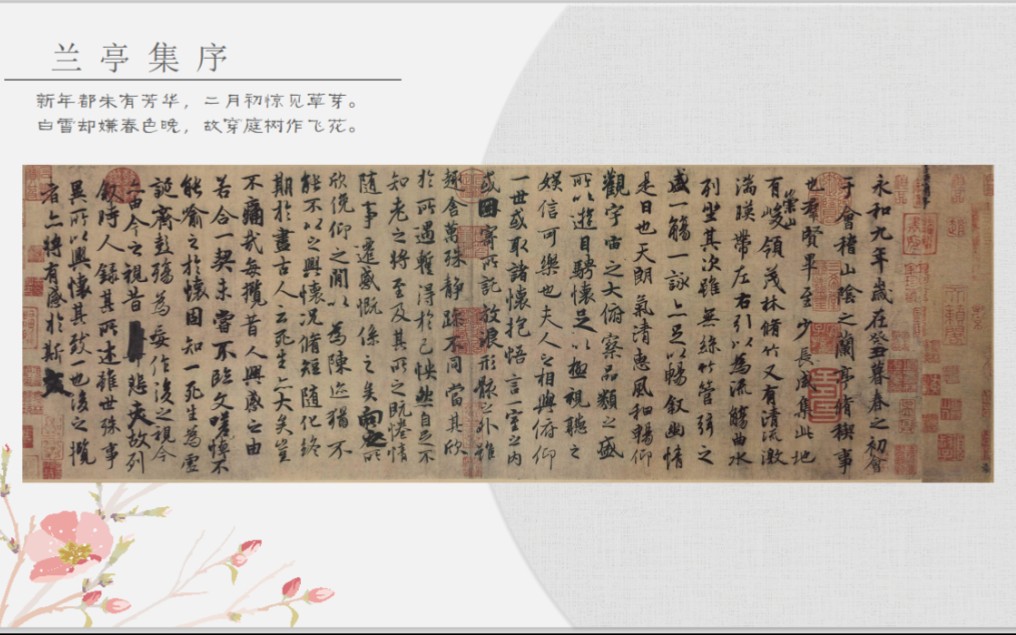 兰亭集序
新年都未有芳华，二月初惊见草芽。
白雪却嫌春色晚，故穿庭树作飞花。
永和九年歲在癸丑暮春之初會
于會稽山陰之蘭亭脩稧事
也羣賢畢至少長咸集此地
有崇山峻領茂林脩竹又有清流激
湍暎帶左右引以為流觴曲水
列坐其次雖無絲竹管弦之
盛一觴一詠亦足以暢敘幽情
是日也天朗氣清惠風和暢仰
觀宇宙之大俯察品類之盛
所以遊目騁懷足以極視聽之
娛信可樂也夫人之相與俯仰
一世或取諸懷抱悟言一室之內
或因寄所託放浪形骸之外雖
趣舍萬殊靜躁不同當其欣
於所遇暫得於己怏然自足不
知老之將至及其所之既惓情
隨事遷感慨係之矣向之所
欣俛仰之閒以為陳迹猶不
能不以之興懷況脩短隨化終
期於盡古人云死生亦大矣豈
不痛哉每攬昔人興感之由
若合一契未嘗不臨文嗟悼不
能喻之於懷固知一死生為虛
誕齊彭殤為妄作後之視今
亦由今之視昔悲夫故列
敘時人錄其所述雖世殊事
異所以興懷其致一也後之攬
者亦將有感於斯文